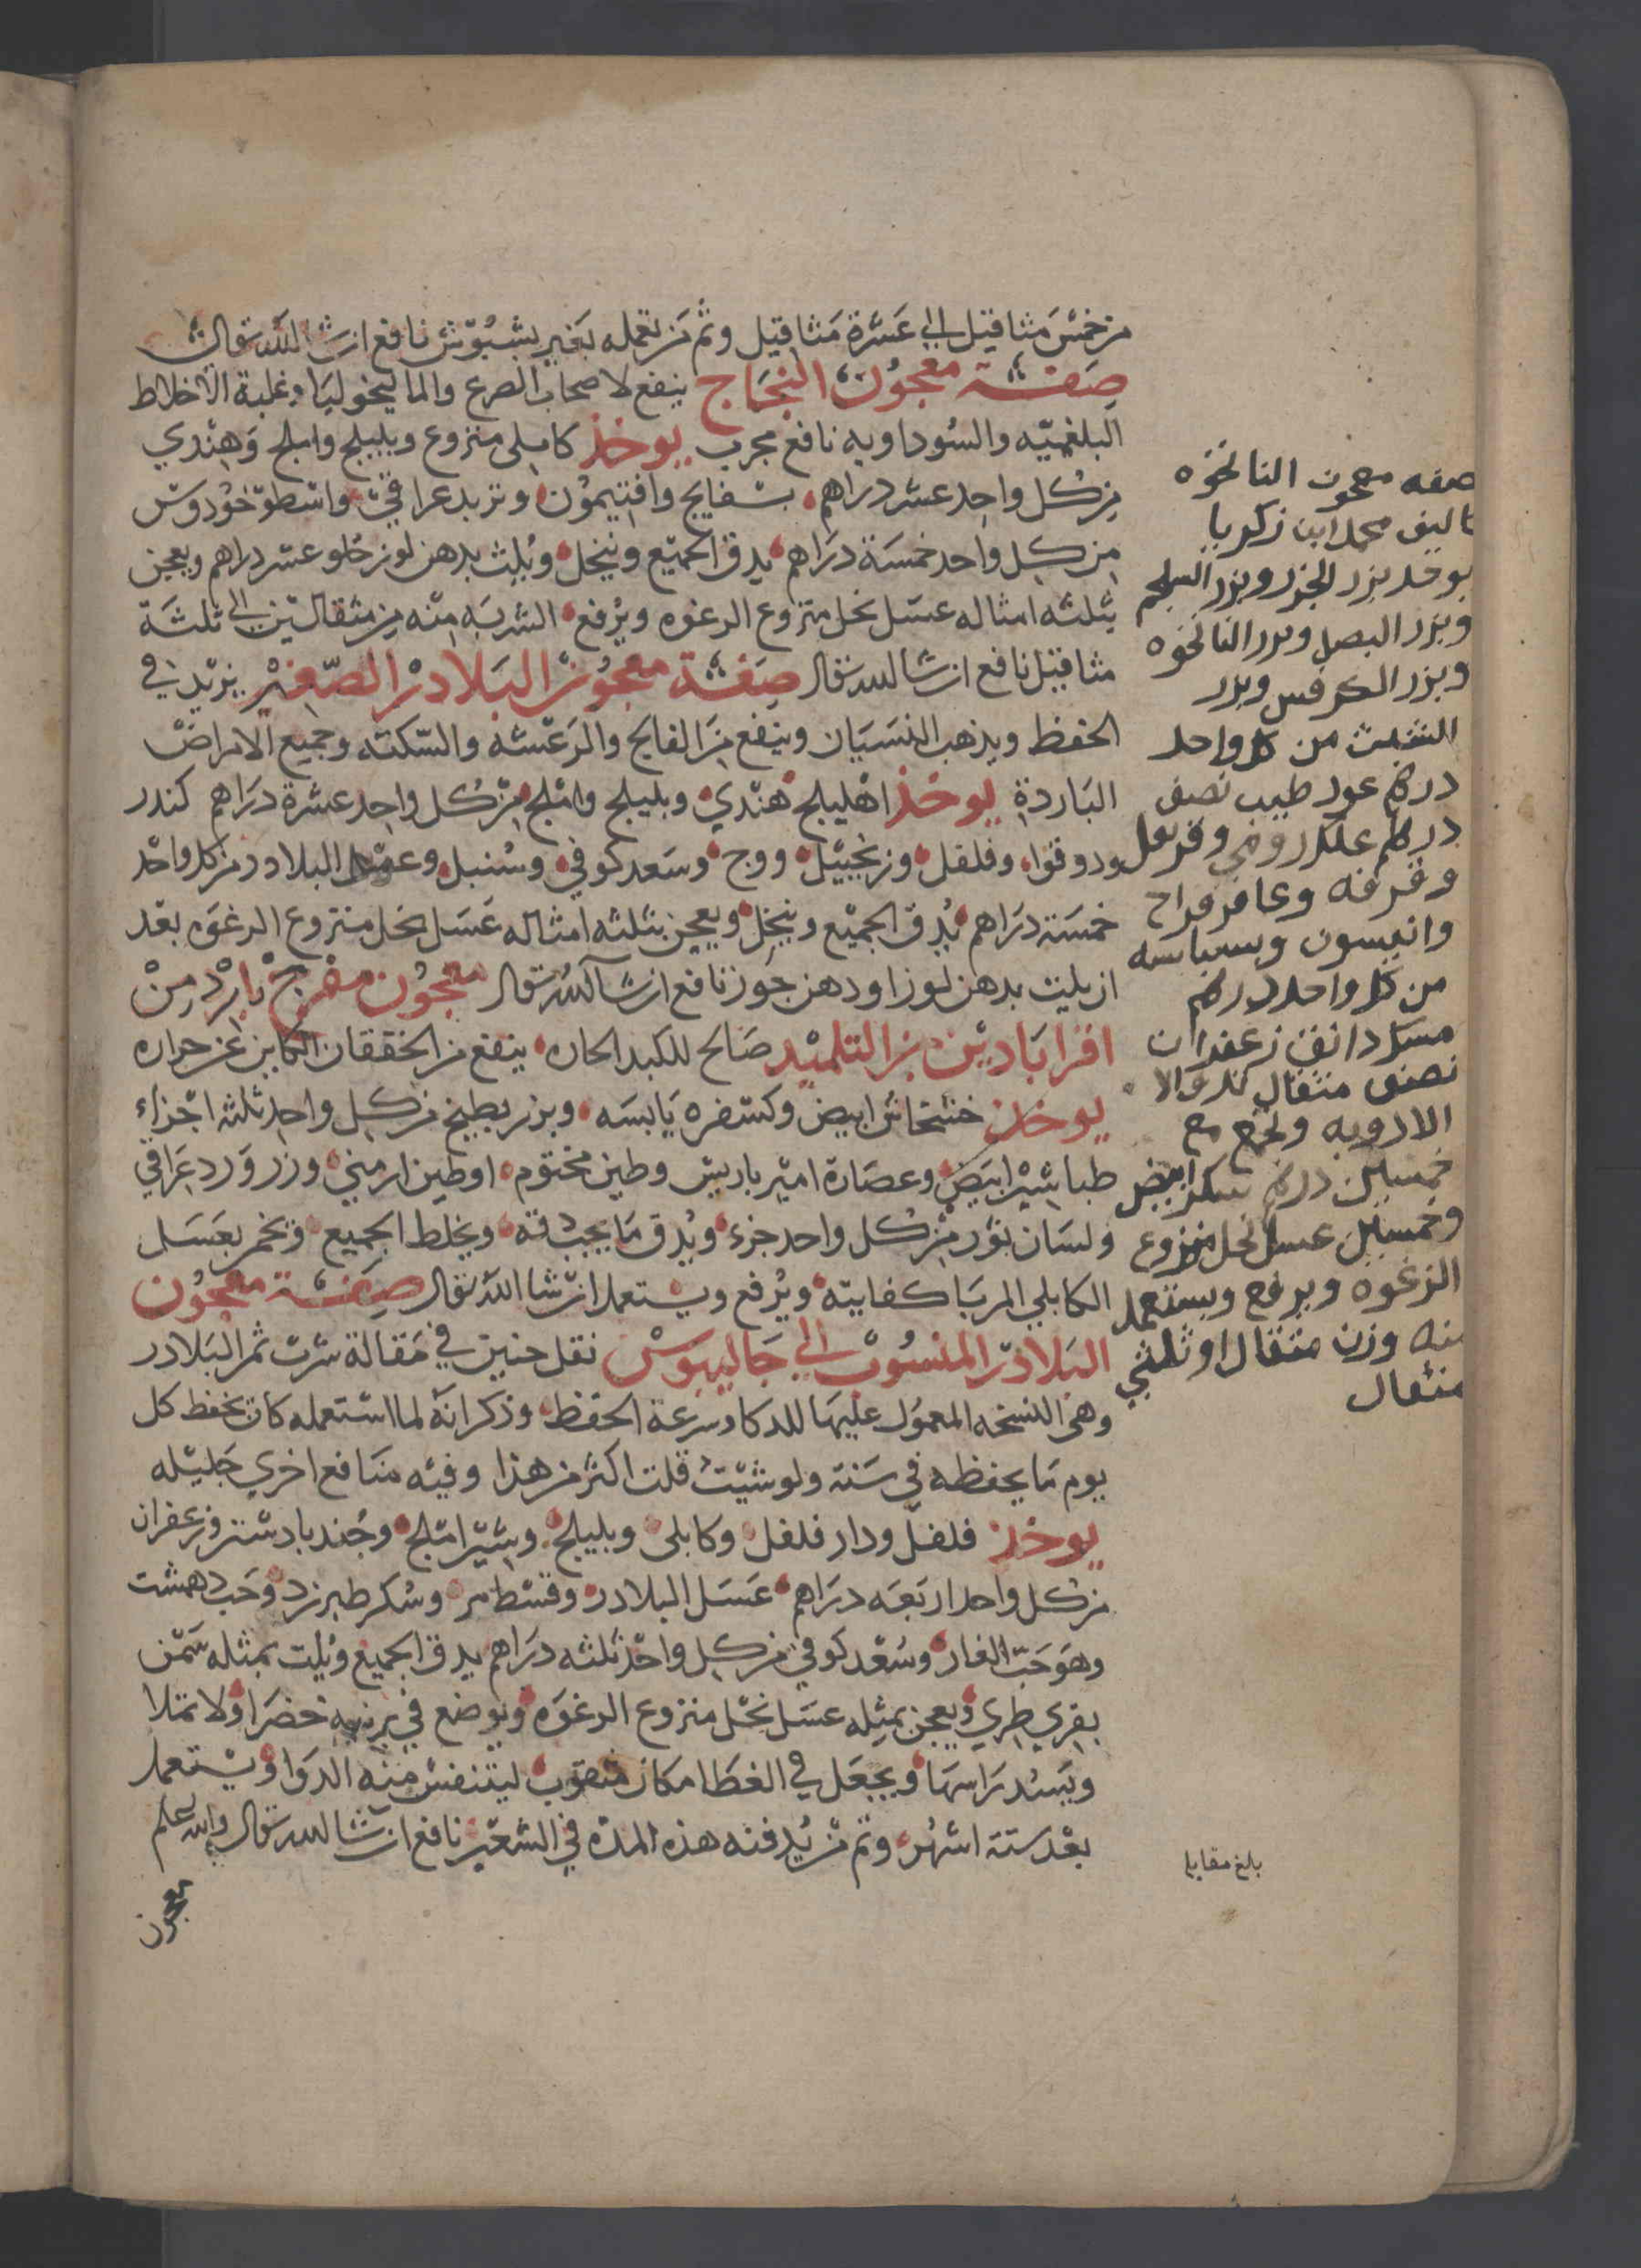 من خمس مثاقيل الى عشرة مثاقيل وثم من يعمله بغير نافع ان شا الله تعالى
صفة معجون النجاح ينفع لاصحاب الصرع والماليخوليا وغلبة الاخلاط
البلغميه والسوداويه نافع مجرب يوخذ كابلى منزوع وبليلج واملج وهندي
من كل واحد عشر دراهم بسفايج وافتيمون وتربد عراقي واسطوخودوس
من كل واحد خمسة دراهم يدق الجميع وينخل ويلت بدهن لوز حلو عشر دراهم ويعجن
بثلثه امثاله عسل نحل منزوع الرغوه ويرفع الشربه منه من مثقالين الى ثلثة
مثاقيل نافع ان شا الله تعالى صفة معجون البلادر الصغير يزيد في
الحفظ ويذهب النسيان وينفع من الفالج والرعشه والسكته وجميع الامراض
الباردة يوخذ اهليلج هندي وبليلج واملج من كل واحد عشرة دراهم كندر
ودوقوا وفلفل وزنجبيل ووج وسعد كوفي وسنبل وعسل البلادر من كل واحد
خمسة دراهم يدق الجميع وينخل ويعجن بثلثه امثاله عسل نحل منزوع الرغوه بعد
ان يلت بدهن لوز او دهن جوز نافع ان شا الله تعالى معجون مفرح بارد من
اقراباذين بن التلميذ صالح للكبد الحاره ينفع من الخفقان الكاين عن حراره
يوخذ خشخاش ابيض وكسفره يابسه وبزر بطيخ من كل واحد ثلثة اجزاء
طباشير ابيض وعصارة امير باريس وطين مختوم او طين ارمني وزر ورد عراقي
ولسان ثور من كل واحد جزء ويدق ما يجب دقه ويخلط الجميع ويخمر بعسل
الكابلي المربا كفايته ويرفع ويستعمل ان شا الله تعالى صفة معجون
البلادر المنسوب الى جالينوس نقل حنين في مقالة شرب ثمر البلادر
وهى النسخه المعمول عليها للدكا وسرعة الحفظ وذكر انه لما استعمله كان يحفظ كل
يوم ما يحفظه في سنة ولو شيت قلت اكثر من هذا وفيه منافع اخري جليله
يوخذ فلفل ودار فلفل وكابلى وبليلج وشير املج وجندبادستر وزعفران
من كل واحد اربعه دراهم عسل البلادر وقسط مر وسكر طبرزد وحب دهمشت
وهو حب الغار وسعد كوفي من كل واحد ثلثه دراهم يدق الجميع ويلت بمثله سمن
بقري طري ويعجن بمثله عسل نحل منزوع الرغوه ويوضع في برنيه خضرا ولا تملا
ويسد راسها ويجعل في الغطا مكان مثقوب ليتنفس منه الدوا ويستعمل
بعد ستة اشهر وثم من يدفنه هذه المده في الشعير نافع ان شا الله تعالى والله اعلم
معجون
صفه معجون النانخوه
تاليف محمد ابن زكريا
يوخد بزر الجزر وبزر السلجم
وبزر البصل وبزر النانخوه
وبزر الكرفس وبزر
الشبث من كل واحد
درهم عود طيب نصف
درهم علك رومي وقرنفل
وقرفه وعاقر قراح
وانيسون وبسباسه
من كل واحد درهم
مسك دانق زعفران
نصف مثقال
الادويه وتجمع مع
خمسين درهم سكر ابيض
وخمسين عسل نحل منزوع
الرغوه ويرفع ويستعمل
منه وزن مثقال او ثلثي
مثقال
بلغ مقابله